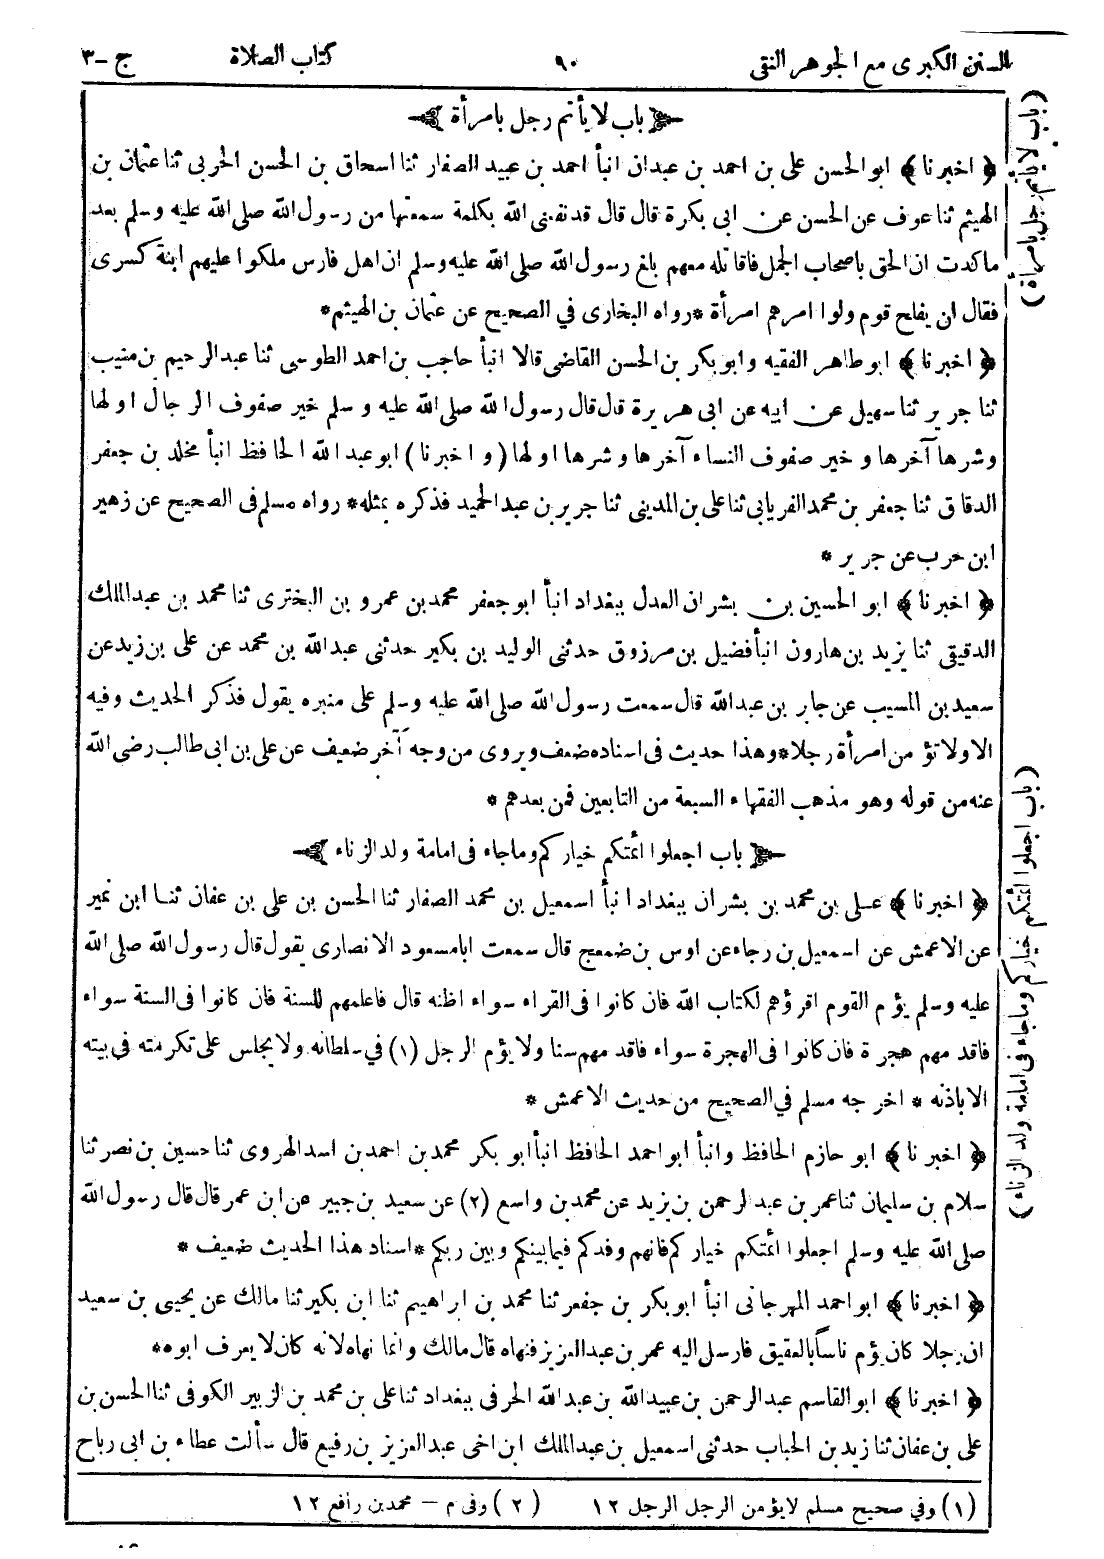 السنن الكبرى مع الجوهر النقى ٩٠ كتاب الصلاة ج-٣
باب لا يأتم رجل بامرأة
﴿ اخبرنا ﴾ ابو الحسن على بن احمد بن عبدان انبأ احمد بن عبيد الصفار ثنا اسحاق بن الحسن الحربى ثنا عثمان بن
الهيثم ثنا عوف عن الحسن عن ابى بكرة قال قال قد نفعنى الله بكلمة سمعتها من رسول الله صلى الله عليه وسلم بعد
ما كدت ان الحق باصحاب الجمل فاقاتله معهم بلغ رسول الله صلى الله عليه وسلم ان اهل فارس ملكوا عليهم ابنة كسرى
فقال لن يفلح قوم ولوا امرهم امرأة * رواه البخارى في الصحيح عن عثمان بن الهيثم *
﴿ اخبرنا ﴾ ابو طاهر الفقيه وابو بكر بن الحسن القاضى قالا انبأ حاجب بن احمد الطوسى ثنا عبد الرحيم بن منيب
ثنا جرير ثنا سهيل عن ابيه عن ابى هريرة قال قال رسول الله صلى الله عليه وسلم خير صفوف الرجال اولها
وشرها آخرها وخير صفوف النساء آخرها وشرها اولها ( واخبرنا ) ابو عبد الله الحافظ انبأ مخلد بن جعفر
الدقاق ثنا جعفر بن محمد الفريابى ثنا على بن المدينى ثنا جرير بن عبد الحميد فذكره بمثله * رواه مسلم فى الصحيح عن زهير
ابن حرب عن جرير *
﴿ اخبرنا ﴾ ابو الحسين بن بشران العدل ببغداد انبأ ابو جعفر محمد بن عمرو بن البخترى ثنا محمد بن عبد الملك
الدقيقى ثنا يزيد بن هارون انبأ فضيل بن مرزوق حدثنى الوليد بن بكير حدثنى عبد الله بن محمد عن على بن زيد عن
سعيد بن المسيب عن جابر بن عبد الله قال سمعت رسول الله صلى الله عليه وسلم على منبره يقول فذكر الحديث وفيه
الا ولا تؤمن امرأة رجلا * وهذا حديث فى اسناده ضعف ويروى من وجه آخر ضعيف عن على بن ابى طالب رضى الله
عنه من قوله وهو مذهب الفقهاء السبعة من التابعين فمن بعدهم *
باب اجعلوا ائمتكم خياركم وما جاء فى امامة ولد الزناء
﴿ اخبرنا ﴾ على بن محمد بن بشران ببغداد انبأ اسمعيل بن محمد الصفار ثنا الحسن بن على بن عفان ثنا ابن نمير
عن الاعمش عن اسمعيل بن رجاء عن اوس بن ضمعج قال سمعت ابا مسعود الانصارى يقول قال رسول الله صلى الله
عليه وسلم يؤم القوم اقرؤهم لكتاب الله فان كانوا فى القراء سواء اظنه قال فاعلمهم للسنة فان كانوا فى السنة سواء
فاقدمهم هجرة فان كانوا فى الهجرة سواء فاقدمهم سنا ولا يؤم الرجل (١) في سلطانه ولا يجلس على تكرمته فى بيته
الا باذنه * اخرجه مسلم في الصحيح من حديث الاعمش *
﴿ اخبرنا ﴾ ابو حازم الحافظ وانبأ ابو احمد الحافظ انبأ ابو بكر محمد بن احمد بن اسد الهروى ثنا حسين بن نصر ثنا
سلام بن سليمان ثنا عمر بن عبد الرحمن بن يزيد عن محمد بن واسع (٢) عن سعيد بن جبير عن ابن عمر قال قال رسول الله
صلى الله عليه وسلم اجعلوا ائمتكم خياركم فانهم وفدكم فيما بينكم وبين ربكم * اسناد هذا الحديث ضعيف *
﴿ اخبرنا ﴾ ابو احمد المهرجانى انبأ ابو بكر بن جعفر ثنا محمد بن ابراهيم ثنا ابن بكير ثنا مالك عن يحيى بن سعيد
ان رجلا كان يؤم ناساً بالعقيق فارسل اليه عمر بن عبد العزيز فنهاه قال مالك وانما نهاه لانه كان لا يعرف ابوه *
﴿ اخبرنا ﴾ ابو القاسم عبد الرحمن بن عبيد الله بن عبد الله الحرفى ببغداد ثنا على بن محمد بن الزبير الكوفى ثنا الحسن بن
على بن عفان ثنا زيد بن الحباب حدثنى اسمعيل بن عبد الملك ابن اخى عبد العزيز بن رفيع قال سألت عطاء بن ابى رباح
(١) وفي صحيح مسلم لا يؤمن الرجل الرجل ١٢ (٢) وفى م - محمد بن رافع ١٢
(باب لا يأتم رجل بامرأة)
(باب اجعلوا ائمتكم خياركم وما جاء فى امامة ولد الزناء)